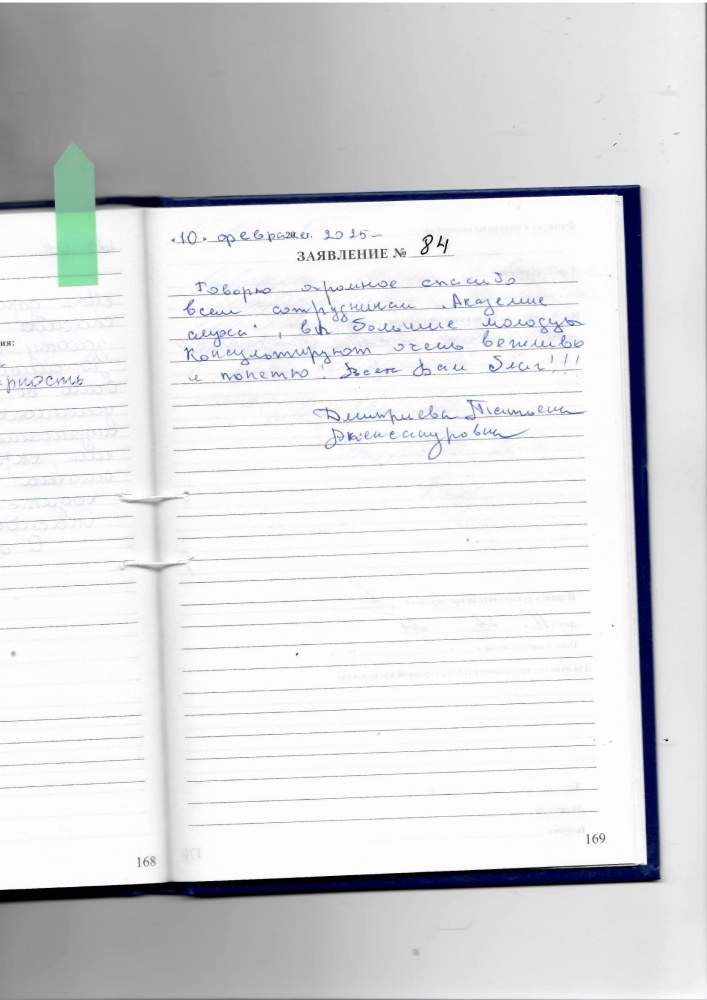 ния:
рность
«10» февраля 20 г. 2025
ЗАЯВЛЕНИЕ № 84
Говорю огромное спасибо
всем сотрудникам „Академие
слуха“, вы большие молодцы
Консультируют очень вежливо
и понетно! Всем Вам благ!!!
Дмитриева Татьяна
Александровна
168
169